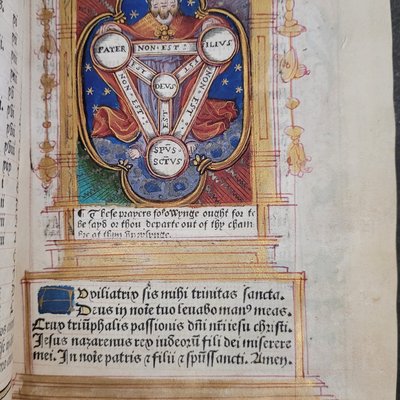 PATER NON·EST FILIUS
EST EST
DEUS
NON·EST EST NON·EST
SPUS
SCTUS
¶ These prayers folowynge ought for to
be sayd or thou departe out of thy cham
bre at thyn upryſynge.
Auxiliatrix sis mihi trinitas sancta.
Deus in noīe tuo levabo manꝰ meas.
Crux triūphalis passionis dñi nr̄i iesu christi.
Jesus nazarenus rex iudeorū fili dei miserere
mei. In noīe patris & filii & spūssancti. Amen.